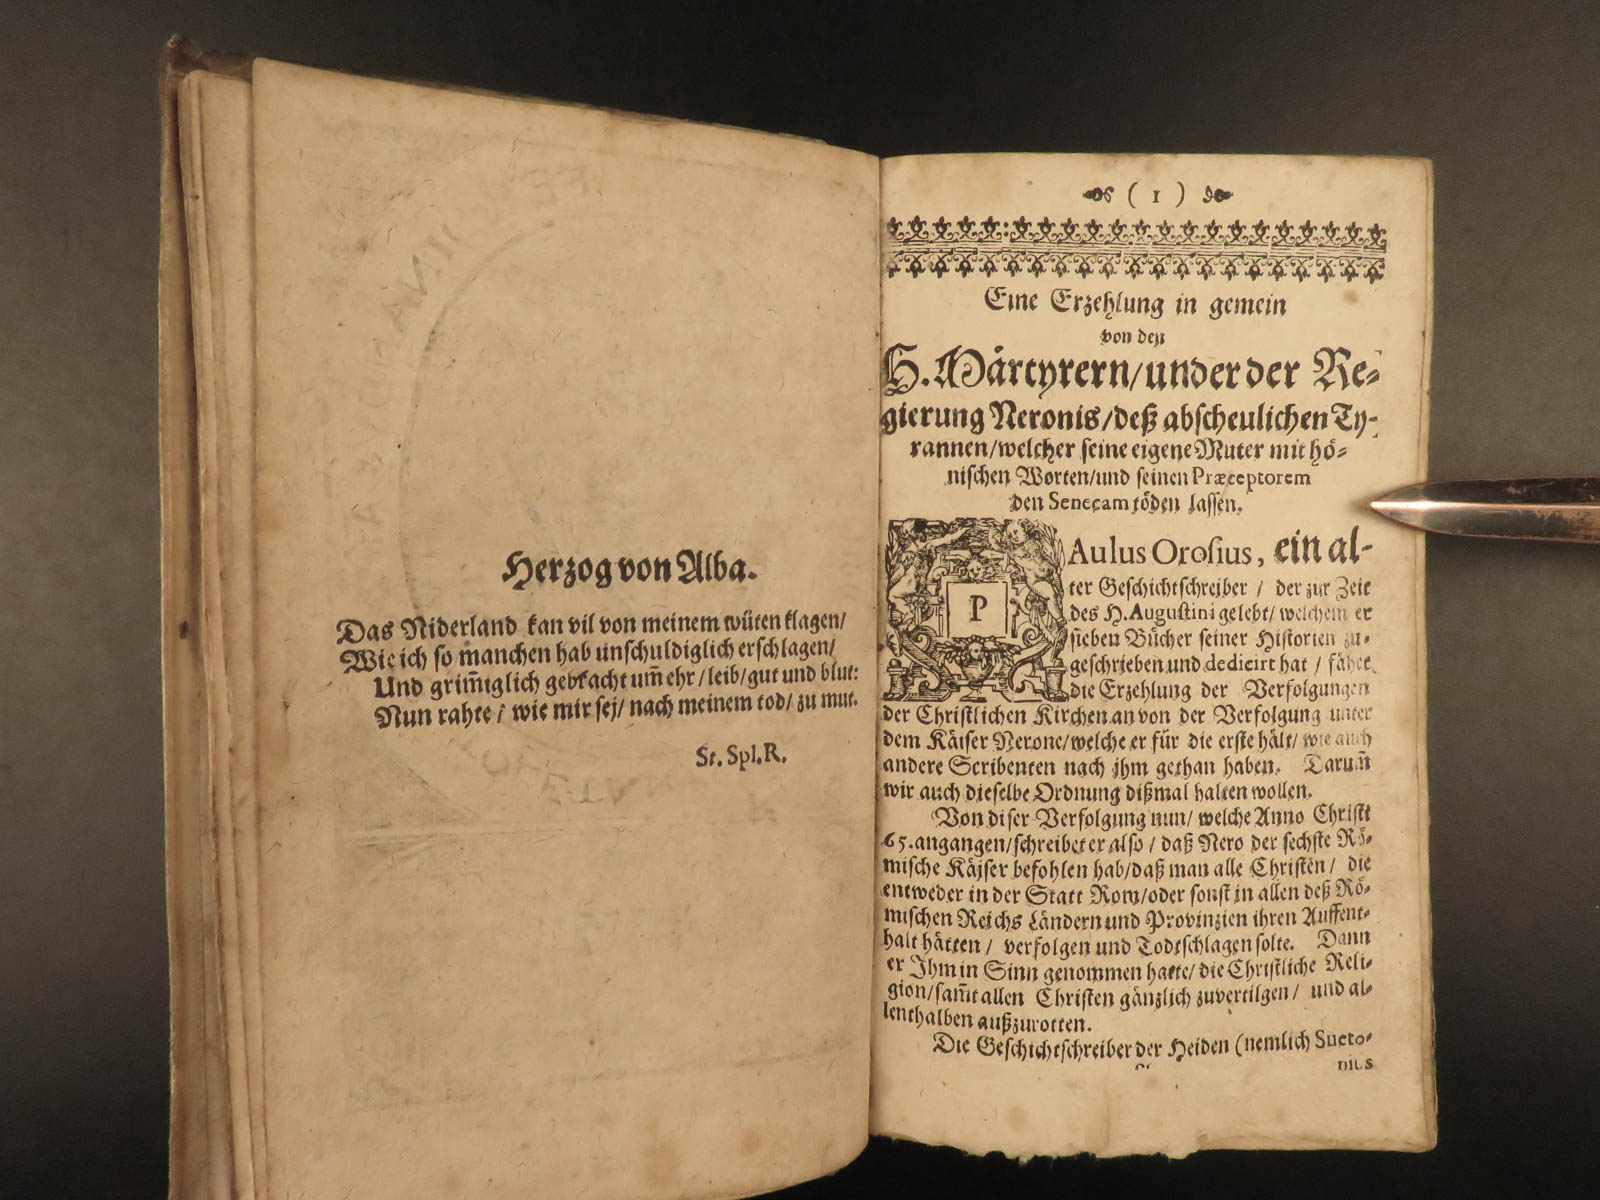 Herzog von Alba.
Das Niderland kan vil von meinem wüten klagen/
Wie ich so manchen hab unschuldiglich erschlagen/
Und grim̃iglich gebracht um̃ ehr/leib/gut und blut:
Nun rahte/ wie mir sej/ nach meinem tod/ zu mut.
St. Spl. R.
( 1 )
Eine Erzehlung in gemein
von den
H. Märtyrern/under der Re-
gierung Neronis/deß abscheulichen Ty-
rannen/welcher seine eigene Muter mit hö-
nischen Worten/und seinen Præceptorem
den Senecam töden lassen.
PAulus Orosius, ein al-
ter Geschichtschreiber / der zur Zeit
des H. Augustini gelebt/ welchem er
sieben Bücher seiner Historien zu-
geschrieben und dedicirt hat / fähet
die Erzehlung der Verfolgungen
der Christlichen Kirchen an von der Verfolgung unter
dem Käiser Nerone/welche er für die erste hält/ wie auch
andere Scribenten nach jhm gethan haben. Darum̃
wir auch dieselbe Ordnung dißmal halten wollen.
Von diser Verfolgung nun/ welche Anno Christi
65. angangen/schreibet er also / daß Nero der sechste Rö-
mische Käjser befohlen hab/daß man alle Christen/ die
entweder in der Statt Rom/oder sonst in allen deß Rö-
mischen Reichs Ländern und Provinzien ihren Auffent-
halt hätten / verfolgen und Todtschlagen solte. Dann
er Ihm in Sinn genommen hatte/ die Christliche Reli-
gion/sam̃t allen Christen gänzlich zuvertilgen/ und al-
lenthalben außzurotten.
Die Geschichtschreiber der Heiden (nemlich Sueto-
nius